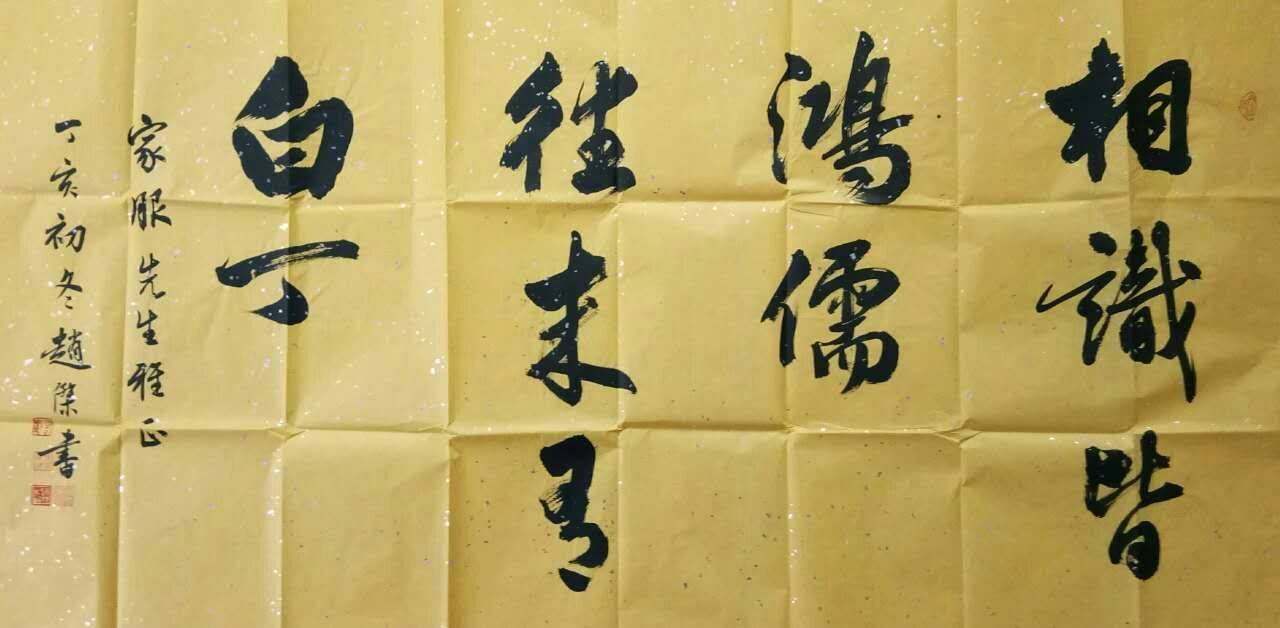 相識皆
鴻儒
往来有
白丁
家服先生雅正
丁亥初冬趙傑書